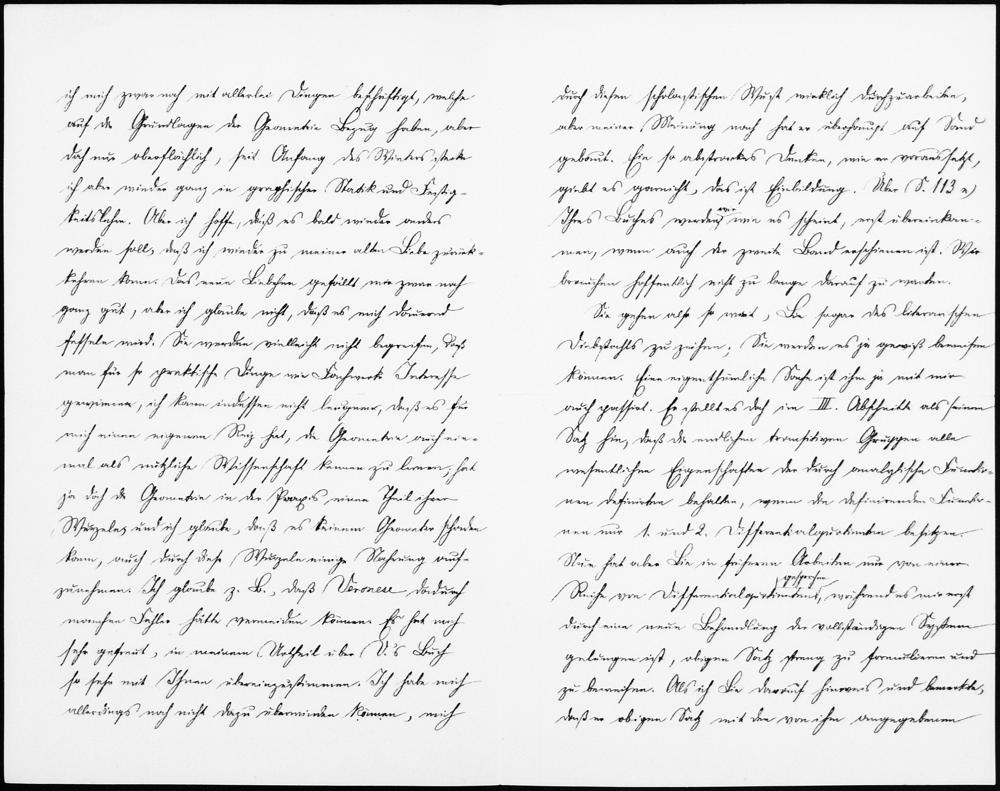 ich mich zwar noch mit allerlei Dingen beschäftigt, welche
auf die Grundlagen der Geometrie Bezug haben, aber
doch nur oberflächlich, seit Anfang des Winters stecke
ich aber wieder ganz in graphischer Statik und Festig-
keitslehre. Aber ich hoffe, daß es bald wieder anders
werden soll, daß ich wieder zu meiner alten Liebe zurück-
kehren kann. Das neue Liebchen gefällt mir zwar noch
ganz gut, aber ich glaube nicht, daß es mich dauernd
fesseln wird. Sie werden vielleicht nicht begreifen, daß
man für so praktische Dinge wie Fachwerk Interesse
gewinnen, ich kann indessen nicht leugnen, daß es für
mich einen eigenen Reiz hat, die Geometrie auch ein-
mal als nützliche Wissenschaft kennen zu lernen, hat
ja doch die Geometrie in der Praxis einen Theil ihrer
Wurzeln, und ich glaube, daß es keinem Geometer schaden
kann, auch durch diese Wurzeln einige Nahrung auf-
zunehmen. Ich glaube z. B., daß Veronese dadurch
manchen Fehler hätte vermeiden können. Es hat mich
sehr gefreut, in meinem Urtheil über V.'s Buch
so sehr mit Ihnen übereinzustimmen. Ich habe mich
allerdings noch nicht dazu überwinden können, mich
durch diesen scholastischen Wust wirklich durchzuarbeiten,
aber meiner Meinung nach hat er überhaupt auf Sand
gebaut. Ein so abstractes Denken, wie er voraussetzt,
giebt es garnicht, das ist Einbildung. Über S. 113
Ihres Buches werden wir wie es scheint, erst übereinkom-
men, wenn auch der zweite Band erschienen ist. Wir
brauchen hoffentlich nicht zu lange darauf zu warten.
Sie gehen also so weit, Lie sogar des literarischen
Diebstahls zu zeihen; Sie werden es ja gewiß beweisen
können. Eine eigenthümliche Sache ist ihm ja mit mir
auch passirt. Er stellt es doch im III. Abschnitte als seinen
Satz hin, daß die endlichen transitiven Gruppen alle
wesentlichen Eigenschaften der durch analytische Functio-
nen definirten behalten, wenn die definirenden Functio-
nen nur 1. und 2. Differentialquotienten besitzen.
Nun hat aber Lie in früheren Arbeiten nur von einer
Reihe von Differentialquotienten gesprochen, während es mir erst
durch eine neue Behandlung der vollständigen Systeme
gelungen ist, obigen Satz streng zu formulieren und
zu beweisen. Als ich Lie darauf hinwies und bemerkte,
daß er obigen Satz mit den von ihm angegebenen